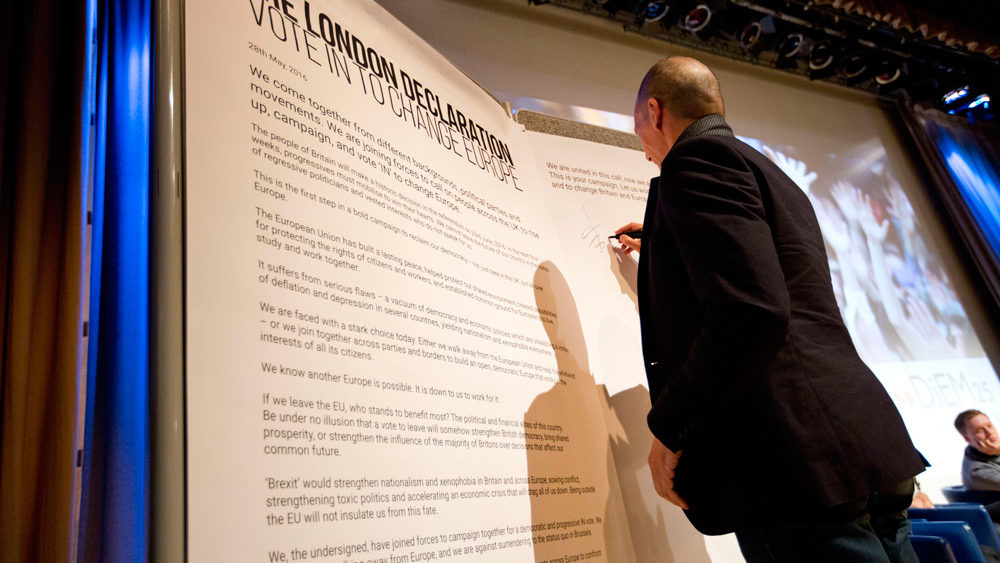 THE LONDON DECLARATION
VOTE IN TO CHANGE EUROPE
28th May, 2016
We come together from different backgrounds, political parties and
movements. We are joining forces to call on people across the UK to rise
up, campaign, and vote ‘IN’ to change Europe.
The people of Britain will make a historic decision in the referendum on 23rd June, 2016. In the next four
weeks, progressives must mobilise to win their hearts. We cannot leave the future of our country in the hands
of regressive politicians and vested interests who do not speak for us.
This is the first step in a bold campaign to reclaim our democracy – not just here in the UK, but all over
Europe.
The European Union has built a lasting peace, helped protect our shared environment, created possibilities
for protecting the rights of citizens and workers, and established common ground for Europeans to live,
study and work together.
It suffers from serious flaws – a vacuum of democracy and economic policies which are unleashing a vortex
of deflation and depression in several countries, yielding nationalism and xenophobia everywhere.
We are faced with a stark choice today. Either we walk away from the European Union and reap the whirlwind
– or we join together across parties and borders to build an open, democratic Europe that works in the
interests of all its citizens.
We know another Europe is possible. It is down to us to work for it.
If we leave the EU, who stands to benefit most? The political and financial elites of this country.
Be under no illusion that a vote to leave will somehow strengthen British democracy, bring shared
prosperity, or strengthen the influence of the majority of Britons over decisions that affect our
common future.
‘Brexit’ would strengthen nationalism and xenophobia in Britain and across Europe, sowing conflict,
strengthening toxic politics and accelerating an economic crisis that will drag all of us down. Being outside
the EU will not insulate us from this fate.
We, the undersigned, have joined forces to campaign together for a democratic and progressive IN vote. We
away from Europe, and we are against surrendering to the status quo in Brussels.
across Europe to confront
We are united in this call, now we
This is your campaign. Let us wo
and to change Britain and Europ
DiEM25